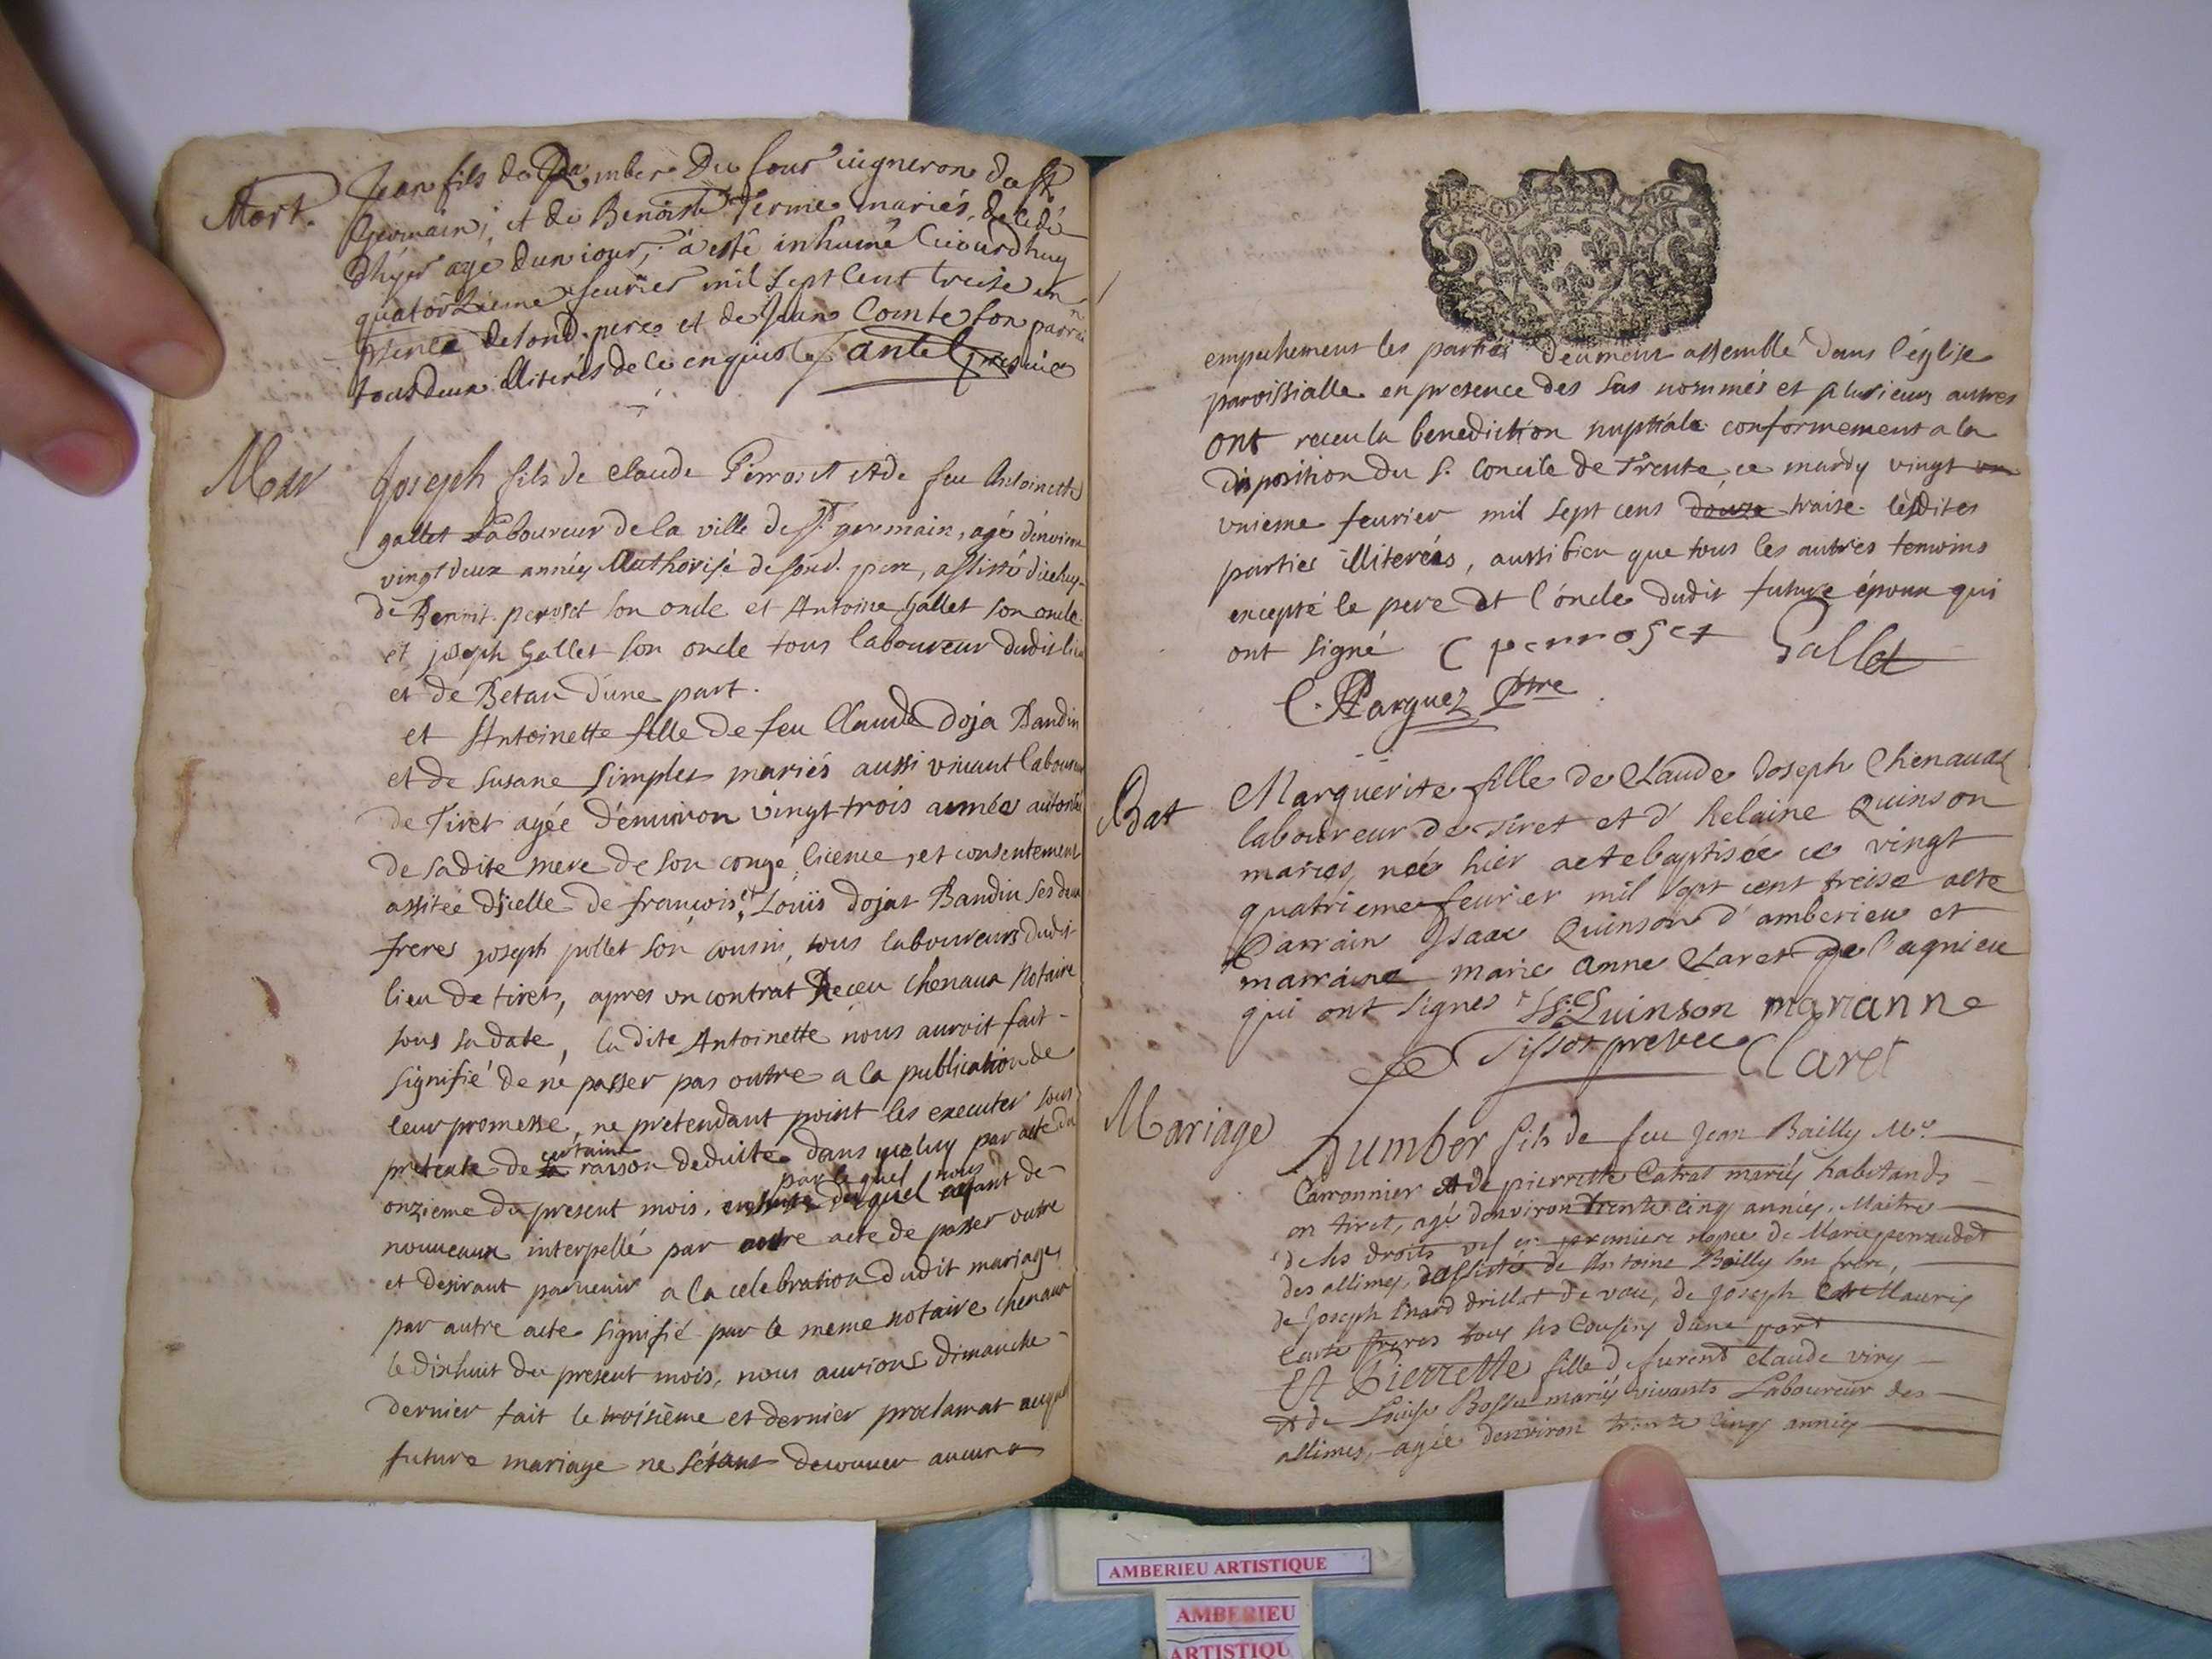 Mort.
Jean fils de Humber Du four vigneron de st
Germain, et de Benoiste ferme mariés, decedé
dhyer age dun iour, a esté inhumé Ciiourdhuy
quatorzieme feurier mil sept cent treise en
psence desond. pere et de Jean Comte son parrain
tous deux illiterés de ce enquis
Mar
Joseph fils de Claude Perroset et de feu Antoinette
gallet Laboureur de la ville de St. germain, agé d'environ
vingt deux années Authorisé de sond. pere, assisté diceluy
de Benoit perroset son oncle et Antoine Gallet son oncle
et joseph Gallet son oncle tous laboureur dudit lieu
et de Betan d'une part.
et Antoinette fille de feu Claude Doja Bandin
et de Susane Simplet mariés aussi vivant laboureur
de Tiret agée d'environ vingt trois année autorisée
de sadite mere de son congé, licence, et consentement
assitée d'icelle de francois, et Loüis dojat Bandin ses deux
freres joseph pollet son cousin, tous laboureurs dudit
lieu de tiret, apres un contrat Receu chenaux Notaire
sous sa date, ladite Antoinette nous auroit fait
signifié de ne passer pas outre a la publication de
leur promesse, ne pretendant point les executer sous
pretexte de certaine raison deduite dans iceluy par acte du
onzieme du present mois. par lequel nous ayant de
nouveaux interpellé par autre acte de passer outre
et desirant parvenir a la celebration dudit mariage,
par autre acte signifié par le meme notaire chenaux
le dixhuit du present mois, nous aurions dimanche
dernier fait le troisième et dernier proclamat auquel
future mariage ne s'étant decouver aucune
empechement les parties deument assemblé dans l'église
paroissialle en presence des sus nommés et plusieurs autres
ont receu la benediction nuptiale conformement a la
disposition du s. concile de Trente, ce mardy vingt un
vnieme feurier mil sept cens douze traise lesdites
parties illiterées, aussi bien que tous les autres temoins
excepté le pere et l'óncle dudit future époux qui
ont signé C perroset Gallet
C. Parguez Ptre
Bat
Marguerite fille de Claude Joseph Chenaux
laboureur de Tiret et d'helaine Quinson
mariés, née hier aete baptisée ce vingt
quatrieme feurier mil sept cent treise aété
Parrain Isaac Quinson d'amberieu et
marraine marie anne Claret de lagnieu
qui ont signes Quinson marianne
Tissot prevec Claret
Mariage
humber fils de feu Jean Bailly Me.
Carronnier et de pierrette Catrat mariés habitands
en tiret, agé denviron trente cinq années, Maitre
de ses droits vef en premiere nopce de Marie perraudet
des allimes, dassisté de Antoine Bailly son frere,
de Joseph Inard drillat de vau, de Joseph et Mauris
Caste freres tous ses Cousins d'une part
Et Pierrette fille defurent Claude viry
et de Louise Bossu mariés vivants Laboureur des
allimes, agée denviron trente cinq années
AMBERIEU ARTISTIQUE
AMBERIEU
ARTISTIQU